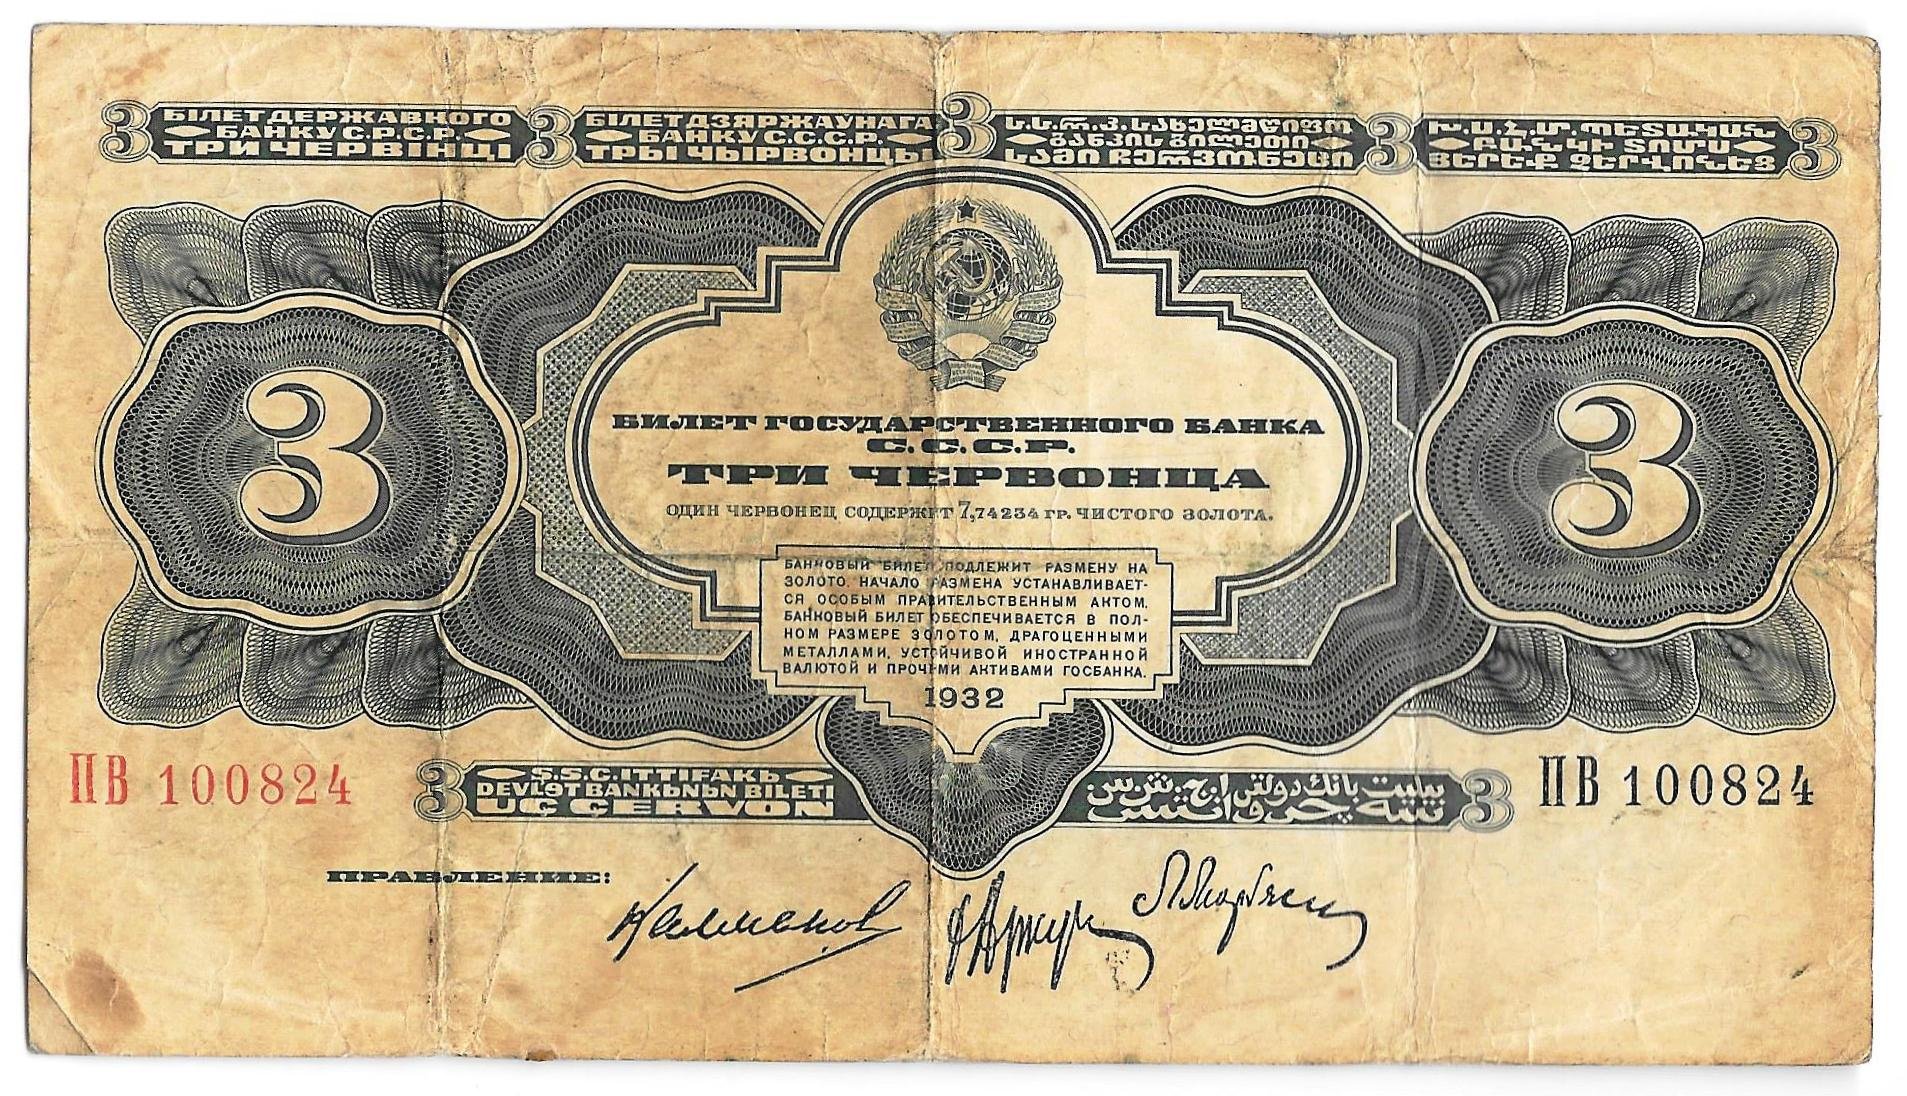 3 БІЛЕТ ДЕРЖАВНОГО
БАНКУ С.Р.С.Р.
ТРИ ЧЕРВІНЦІ
3 БІЛЕТ ДЗЯРЖАУНАГА
БАНКУ С.С.С.Р.
ТРЫ ЧЫРВОНЦЫ
3 ს.ს.რ.კ. სახელმწიფო
ბანკის ბილეთი
სამი ჩერვონეცი
3 Խ.Ս.Հ.Մ. ՊԵՏԱԿԱՆ
ԲԱՆԿԻ ՏՈՄՍ
ՅԵՐԵՔ ՉԵՐՎՈՆԵՑ 3
3
3
БИЛЕТ ГОСУДАРСТВЕННОГО БАНКА
С.С.С.Р.
ТРИ ЧЕРВОНЦА
ОДИН ЧЕРВОНЕЦ СОДЕРЖИТ 7,74234 ГР. ЧИСТОГО ЗОЛОТА.
БАНКОВЫЙ БИЛЕТ ПОДЛЕЖИТ РАЗМЕНУ НА
ЗОЛОТО. НАЧАЛО РАЗМЕНА УСТАНАВЛИВАЕТ-
СЯ ОСОБЫМ ПРАВИТЕЛЬСТВЕННЫМ АКТОМ.
БАНКОВЫЙ БИЛЕТ ОБЕСПЕЧИВАЕТСЯ В ПОЛ-
НОМ РАЗМЕРЕ ЗОЛОТОМ, ДРАГОЦЕННЫМИ
МЕТАЛЛАМИ, УСТОЙЧИВОЙ ИНОСТРАННОЙ
ВАЛЮТОЙ И ПРОЧИМИ АКТИВАМИ ГОСБАНКА.
1932
ПВ 100824
3 S.S.C. ITTIFAKЬ
DEVLƏT BANKЬNЬN BILETI
UÇ ÇERVON
بيليت بانك دولتى ا.ج.ش.س.
سه چروانتس 3
ПВ 100824
ПРАВЛЕНИЕ:
Калманов